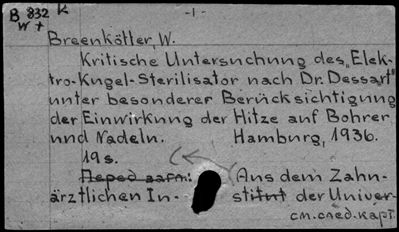 B 832 K
W +
- 1 -
Breenkötter, W.
Kritische Untersuchung des „Elek-
tro-Kugel-Sterilisator nach Dr. Dessart"
unter besonderer Berücksichtigung
der Einwirkung der Hitze auf Bohrer
und Nadeln. Hamburg, 1936.
19 s.
Перед загл: (Aus dem Zahn-
ärztlichen In- stitut der Univer-
см. след. карт.